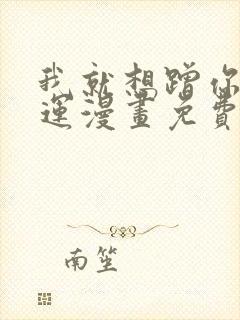 我就想蹭你
運漫畫免費
南笙